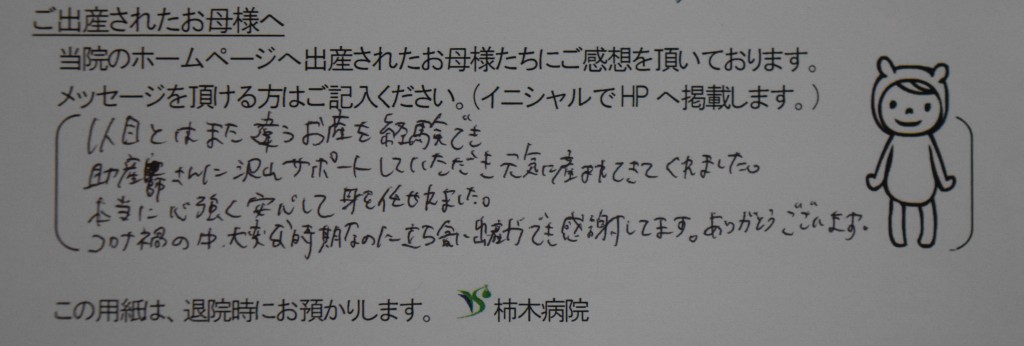 ご出産されたお母様へ
当院のホームページへ出産されたお母様たちにご感想を頂いております。
メッセージを頂ける方はご記入ください。（イニシャルでHPへ掲載します。）
1人目とはまた違うお産を経験でき
助産師さんに沢山サポートしていただき元気に産まれてきてくれました。
本当に心強く安心して身を任せれました。
コロナ禍の中、大変な時期なのに立ち会い出産ができ感謝してます。ありがとうございます。
この用紙は、退院時にお預かりします。 柿木病院